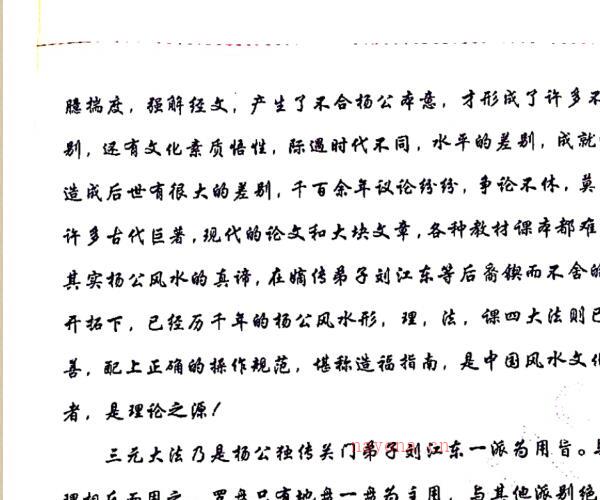 臆揣度，强解经文，产生了不合杨公本意，才形成了许多不
别，还有文化素质悟性，际遇时代不同，水平的差别，成就
造成后世有很大的差别，千百余年议论纷纷，争论不休，莫
许多古代巨著，现代的论文和大块文章，各种教材课本都难
其实杨公风水的真谛，在嫡传弟子刘江东等后裔锲而不舍的
开拓下，已经历千年的杨公风水形，理，法，课四大法则已
善，配上正确的操作规范，堪称造福指南，是中国风水文化
者，是理论之源！
三元大法乃是杨公独传关门弟子刘江东一派为用旨。与
理相在而用之，罗盘只有地盘一盘为主用，与其他派别绝